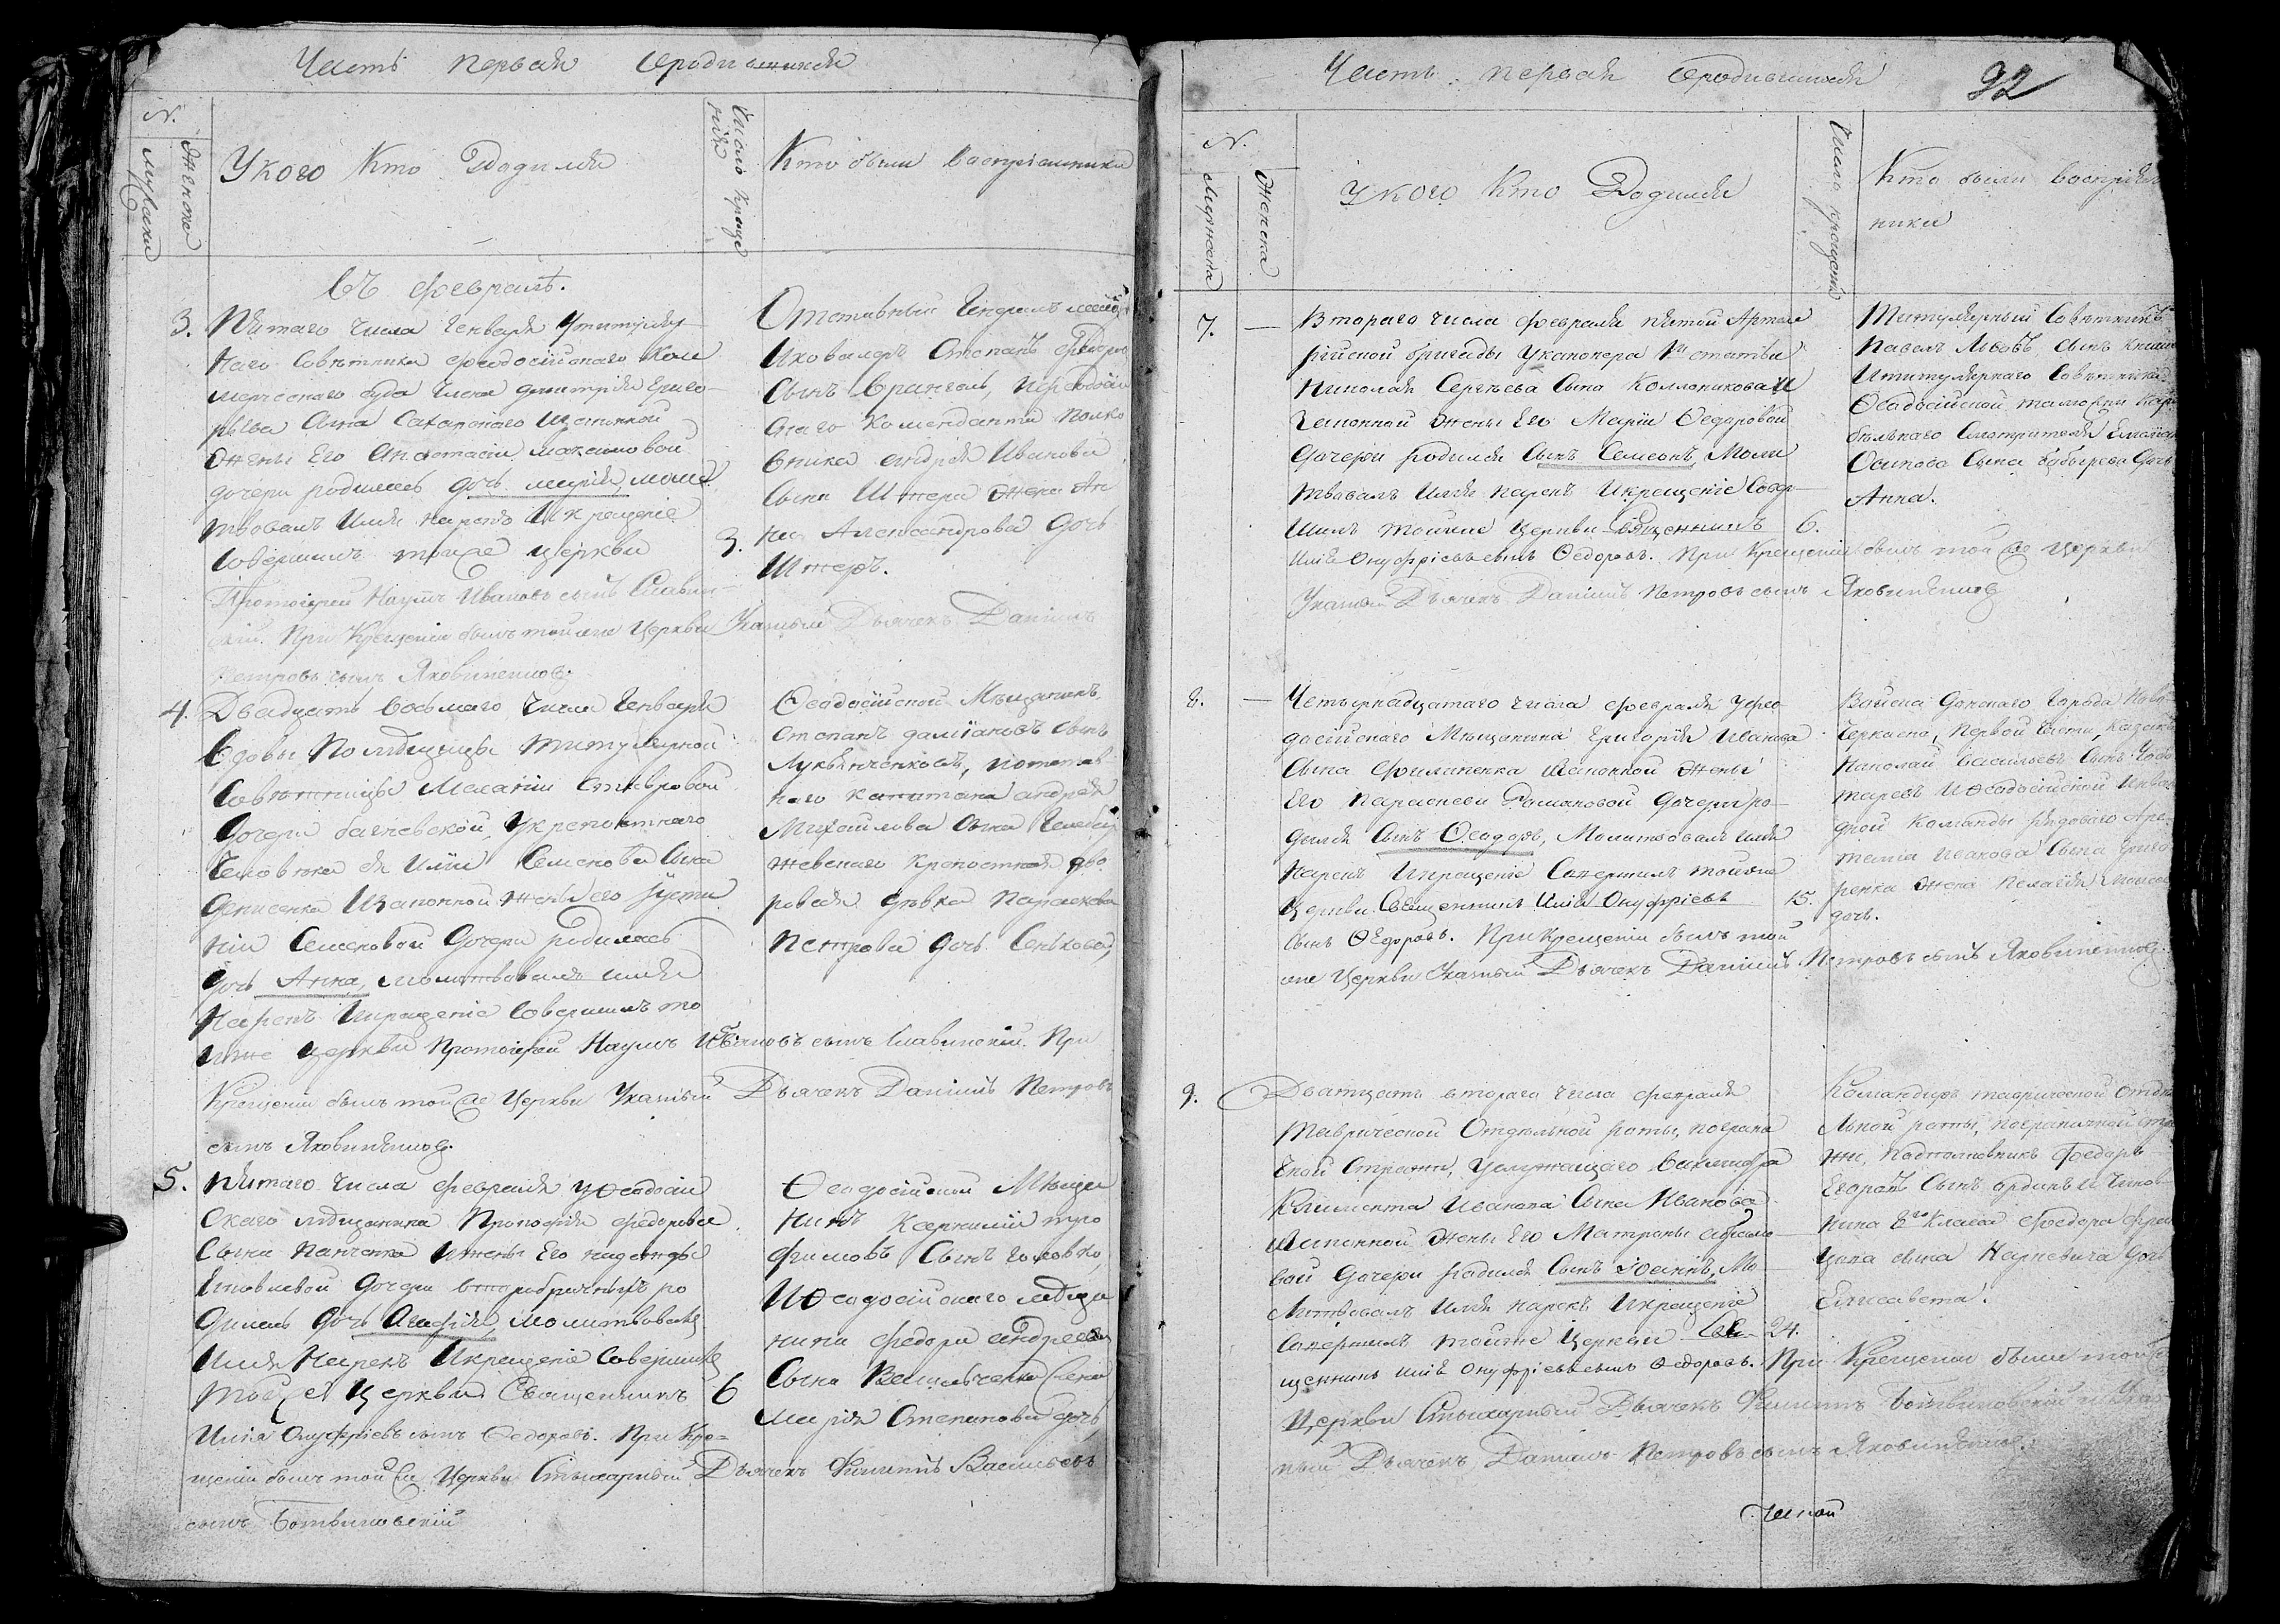 Часть первая ородившихся
N.
Мужска
Женска
У кого Кто Родился
Число креще
нія
Кто были восприемники
Въ Февралѣ.
3.
Пятаго числа Генваря у титуляр
наго Совѣтника Феодосійскаго Ком
мерческаго суда Члена Димитрія Григо
рьева сына Сахарскаго Изаконной
Жены Его Анастасіи Максимовой
дочери родилась дочь Марія, моли
твовалъ Имя нарекъ И крещеніе
совершилъ тойже церкви
Протоіерей Наумъ Ивановъ сынъ Славин
скій. При Крещеніи былъ тойже Церкви Указный Дьячекъ Даніилъ
Петровъ сынъ Яковиненко
3.
Отставный Генералъ маіор
Икавалеръ Степанъ Федоров
Сынъ Врангель, Иѳеодосій
скаго Коменданта Полко
вника Андрея Иванова
Сына Штера Жена Ан
на Александрова Дочь
Штеръ.
4.
Двадцать восьмаго Числа Генваря
Вдовы Помѣщицы Титулярной
Совѣтницы Меланіи Ставровой
Дочери, у крепостнаго
Человѣка ея Иліи Семенова Сына
Денисенка Изаконной жены его Іусти
ніи Семеновой Дочери родилась
Дочь Анна, молитвовалъ имя
Нарекъ Икрещеніе Совершилъ то
йже церкви Протоіерей Наумъ Ивановъ сынъ Славинскій. При
Крещеніи былъ тойже Церкви Указный Дьячекъ Даніилъ Петровъ
сынъ Яковиненко.
Ѳеодосійской Мѣщанинъ
Степанъ Даміановъ сынъ
Лукьянченковъ, Иотстав
наго Капитана Андрея
Михайлова Сына
жевскаго Крепостная дво
ровая дѣвка Параскева
Петрова дочь Сенькова,
5.
Пятаго Числа Февраля у Ѳеодосій
Скаго мѣщанина Прокофія Федорова
Сына Панченка Ижены Его надежды
Яковлевой Дочери
дилась дочь Агафія, молитвовалъ
Имя Нарекъ Икрещеніе Совершилъ
тойже Церкви Священникъ
Илія Онуфріевъ сынъ Федоровъ. При Кре=
щеніи былъ тойже Церкви Стихарный Дьячекъ Филиппъ Васильевъ
сынъ Ботвиновскій
6
Ѳеодосійской Мѣща
нинъ Корнилій тро
фимовъ Сынъ Головко,
Иѳеодосійскаго мѣща
нина Федора Андреева
Сына Васильченка Жена
Марія Степанова дочь,
Часть первая ородившихся
92
N.
Мужска
Женска
У кого Кто Родился
Число крещенія
Кто были восприем
ники
7.
Втораго числа Февраля пятой Артиле
рійской бригады Уканонера 1й статьи
Николая Сергѣева Сына Колпоникова И
Законной жены Его Маріи Ѳедоровой
Дочери родился Сынъ Семеонъ, Моли
твовалъ Имя нарекъ Икрещеніе Совер
шилъ тойже Церкви Священникъ
Илія Онуфріевъ сынъ Ѳедоровъ. При Крещеніи былъ тойже Церкви
Указный Дьячекъ Даніилъ Петровъ сынъ Яковиненко
6.
Титулярный Совѣтникъ
Павелъ Львовъ сынъ
Ититулярнаго Совѣтника
Ѳеодосійской таможни
Смотрителя
Осипова Сына Дочь
Анна.
8.
Четырнадцатаго числа Февраля у Фео
досійскаго Мѣщанина Григорія Иванова
Сына Филипенка Изаконной Жены
Его Параскеви Романовой Дочери ро
дился Сынъ Ѳеодоръ, Молитвовалъ имя
Нарекъ Икрещеніе Совершилъ тойже
Церкви Священникъ Илія Онуфріевъ
Сынъ Ѳедоровъ. При Крещеніи былъ той
же Церкви Указный Дьячекъ Даніилъ Петровъ сынъ Яковиненко.
15.
Войска Донскаго Города Ново
Черкаска, Первой Части, казакъ
Николай Васильевъ Сынъ
Иѳеодосійской Инвали
дной Команды рядоваго Арте
менія Исакова Сына Григо
ренка Жена Пелагія
дочь.
9.
Двадцать втораго числа Февраля
Таврической Отдѣльной роты, погранич
чной Стражи, Услужащаго Вахмистра
Климента Иванова Сына Иванова
Изаконной Жены Его Матроны
вой Дочери родился Сынъ Іоаннъ, Мо
литвовалъ Имя нарекъ Икрещеніе
Совершилъ тойже Церкви Свя
щенникъ Илія Онуфріевъ сынъ Ѳедоровъ. При Крещеніи были тойже
Церкви Стихарный Дьячекъ Филиппъ Ботвиновскій и Указ
ный Дьячекъ Даніилъ Петровъ сынъ Яковиненко.
24.
Командиръ таврической Отдѣ
льной роты, пограничной стра
жи, Подполковникъ Федоръ
Егоровъ Сынъ
ника 8го Класса Федора
сына Наркевича дочь
Елисавета.